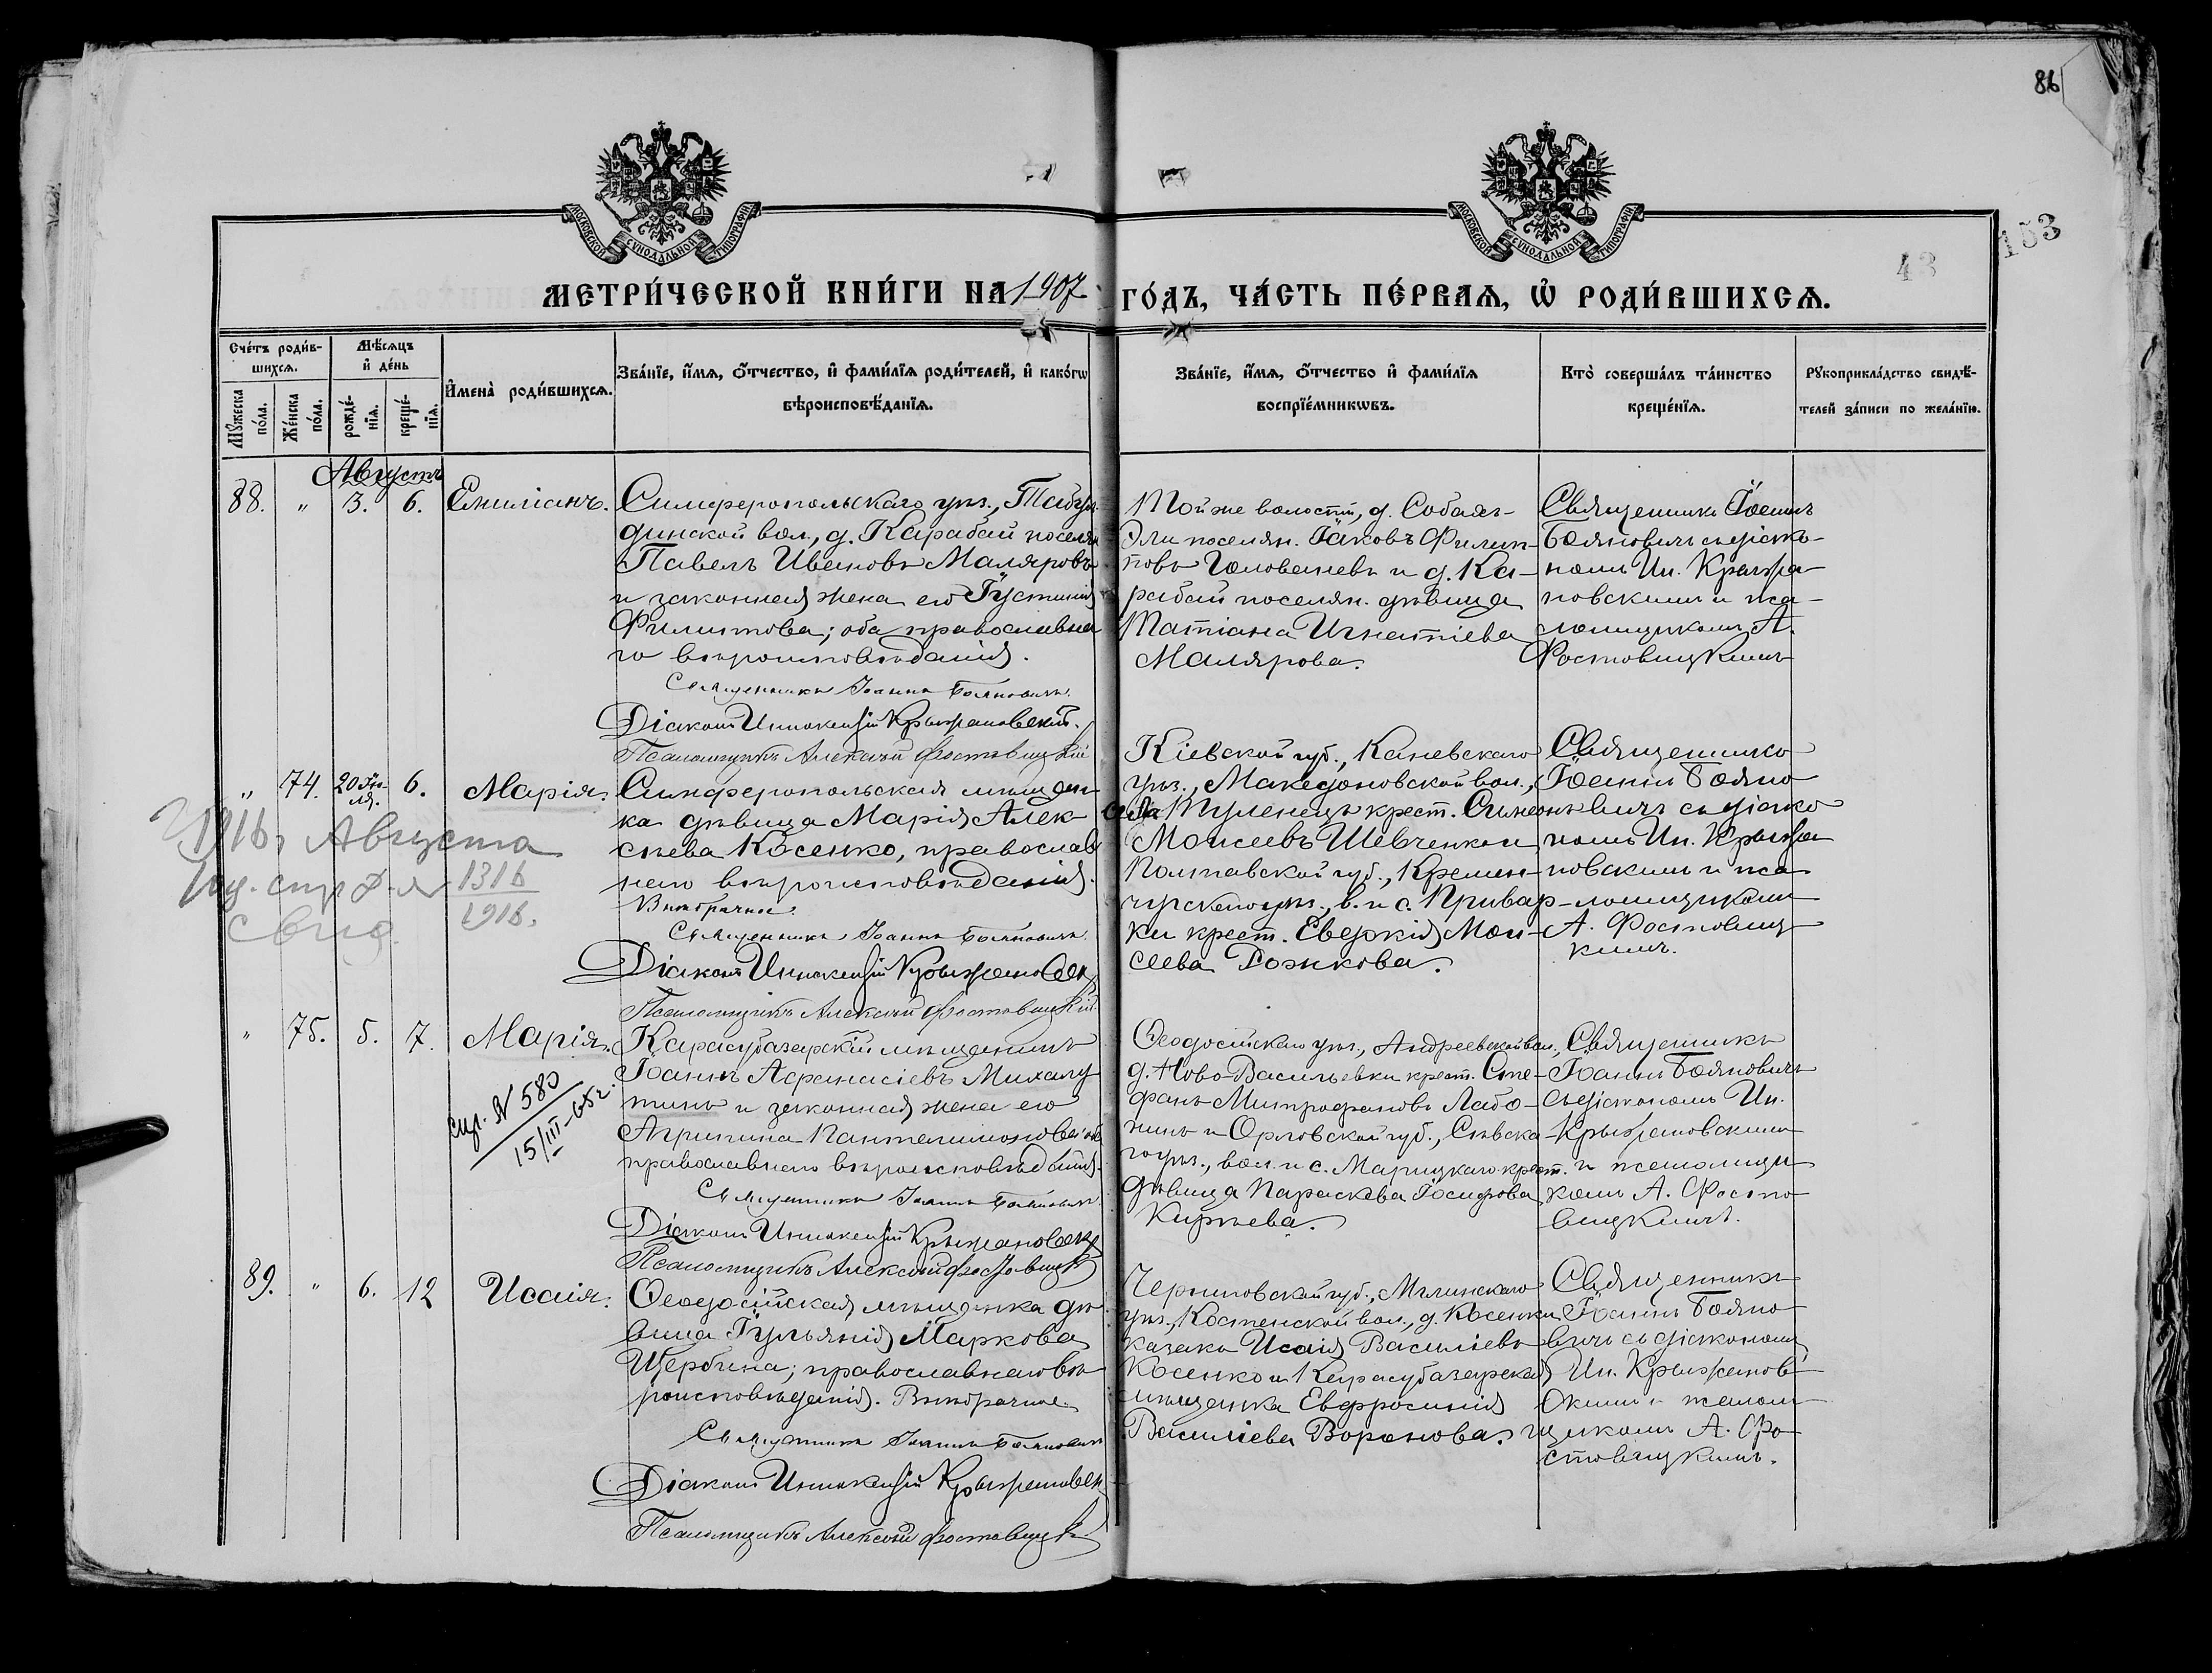 86
153
43
МОСКОВСКОЙ СѴНОДАЛЬНОЙ ТИПОГРАФІИ
МОСКОВСКОЙ СѴНОДАЛЬНОЙ ТИПОГРАФІИ
МЕТРИ́ЧЕСКОЙ КНИ́ГИ НА 1907 ГО́ДЪ, ЧА́СТЬ ПЕ́РВАѦ, Ѡ҆ РОДИ́ВШИХСѦ.
Сче́тъ роди́в-
шихсѧ.
Мꙋжеска по́ла.
Же́нска по́ла.
Мѣ́сѧцъ
и҆ де́нь
рожде́-
нїѧ.
креще́-
нїѧ.
И҆мена̀ роди́вшихсѧ.
Зва́нїе, и҆́мѧ, ѻ҆́тчество, и҆ фами́лїѧ роди́телей, и҆ како́гѡ
вѣроисповѣ́данїѧ.
Зва́нїе, и҆́мѧ, ѻ҆́тчество и҆ фами́лїѧ
воспрїе́мникѡвъ.
Кто̀ соверша́лъ та́инство
креще́нїѧ.
Рꙋкоприкла́дство свидѣ́-
телей за́писи по жела́нїю.
Августъ
88. " 3. 6. Емиліанъ.
Симферопольскаго уѣз., Табул-
динской вол., д. Карабай поселян
Павелъ Ивановъ Маляровъ
и законная жена его Іустинія
Филиппова; оба православна
го вѣроисповѣданія.
Священникъ Іоаннъ Бояновичъ.
Діаконъ Иннокентій Крыжановскій.
Псаломщикъ Алексѣй Фостовицкій
Той же волости, д. Собахъ-
Эли поселян. Іаковъ Филип-
повъ Головачевъ и д. Ка-
рабай поселян. дѣвица
Татіана Игнатіева
Малярова.
Священникъ Іоаннъ
Бояновичъ съ діако-
номъ Ин. Крыжа
новскимъ и пса-
ломщикомъ А.
Фостовицкимъ
" 74. 20 Ію-
ля. 6. Марія.
Симферопольская мѣщан-
ка дѣвица Марія Алек
сѣева Косенко, православ
наго вѣроисповѣданія.
Внѣбрачная.
Священникъ Іоаннъ Бояновичъ.
Діаконъ Иннокентій Крыжановск
Псаломщикъ Алексѣй Фостовицкій
1916 г Августа
1316
1916.
свид.
Кіевской губ., Каневскаго
уѣз., Македоновской вол.,
села Тулинецъ крест. Симеонъ
Моисеевъ Шевченко и
Полтавской губ., Кремен-
чугскаго уѣз., в. и с. Привар-
ки крест. Евдокія Мои-
сеева Рожкова.
Священникъ
Іоаннъ Бояно
вичъ съ діако
номъ Ин. Крыжа
новскимъ и пса
ломщикомъ
А. Фостовиц
кимъ.
" 75. 5. 7. Марія.
Карасубазарскій мѣщанинъ
Іоаннъ Афанасіевъ Михалу
тинъ и законная жена его
Агрипина Пантелимонова; об
православнаго вѣроисповѣданія.
Священникъ Іоаннъ Бояновичъ.
Діаконъ Иннокентій Крыжановск
Псаломщикъ Алексѣй Фостовицк
N 580
15/III-65 г.
Ѳеодосійскаго уѣз., Андреевской вол.,
д. Ново-Васильевки крест. Сте-
фанъ Митрофановъ Лабо-
нинъ и Орловской губ., Сѣвска-
го уѣз., вол. и с. Марицкаго крест.
дѣвица Параскева Іосифова
Киряева.
Священникъ
Іоаннъ Бояновичъ
съ діакономъ Ин.
Крыжановскимъ
и псаломщи
комъ А. Фосто
вицкимъ.
89. " 6. 12 Исаія.
Ѳеодосійская мѣщанка дѣ-
вица Іуліанія Маркова
Щербина; православнаго вѣ
роисповѣданія. Внѣбрачная.
Священникъ Іоаннъ Бояновичъ
Діаконъ Иннокентій Крыжановск
Псаломщикъ Алексѣй Фостовицк
Черниговской губ., Мглинскаго
уѣз., Костенской вол., д. Косенки
казакъ Исаія Василіевъ
Косенко и Карасубазарская
мѣщанка Евфросинія
Василіева Воронова.
Священникъ
Іоаннъ Бояно
вичъ съ діакономъ
Ин. Крыжанов-
скимъ и псалом
щикомъ А. Фо
стовицкимъ.